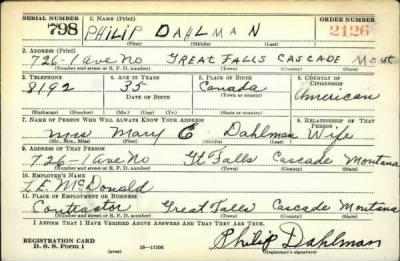 SERIAL NUMBER 1. NAME (Print) ORDER NUMBER
798 PHILIP DAHLMAN 2126
(First) (Middle) (Last)
2. ADDRESS (Print)
726-1 AVE NO GREAT FALLS CASCADE Mont
(Number and street or R. F. D. number) (Town) (County) (State)
3. TELEPHONE 4. AGE IN YEARS 5. PLACE OF BIRTH 6. COUNTRY OF CITIZENSHIP
8192 35 Canada American
DATE OF BIRTH (Town or county)
(Exchange) (Number) (Mo.) (Day) (Yr.) (State or country)
7. NAME OF PERSON WHO WILL ALWAYS KNOW YOUR ADDRESS 8. RELATIONSHIP OF THAT PERSON
Mrs Mary E. Dahlman Wife
(Mr., Mrs., Miss) (First) (Middle) (Last)
9. ADDRESS OF THAT PERSON
726-1 Ave No Gt Falls Cascade Montana
(Number and street or R. F. D. number) (Town) (County) (State)
10. EMPLOYER'S NAME
L.E. McDonald
11. PLACE OF EMPLOYMENT OR BUSINESS
Contractor Great Falls Cascade Montana
(Number and street or R. F. D. number) (Town) (County) (State)
I AFFIRM THAT I HAVE VERIFIED ABOVE ANSWERS AND THAT THEY ARE TRUE.
REGISTRATION CARD
D. S. S. Form 1 16-17105 Philip Dahlman
(Registrant's signature)